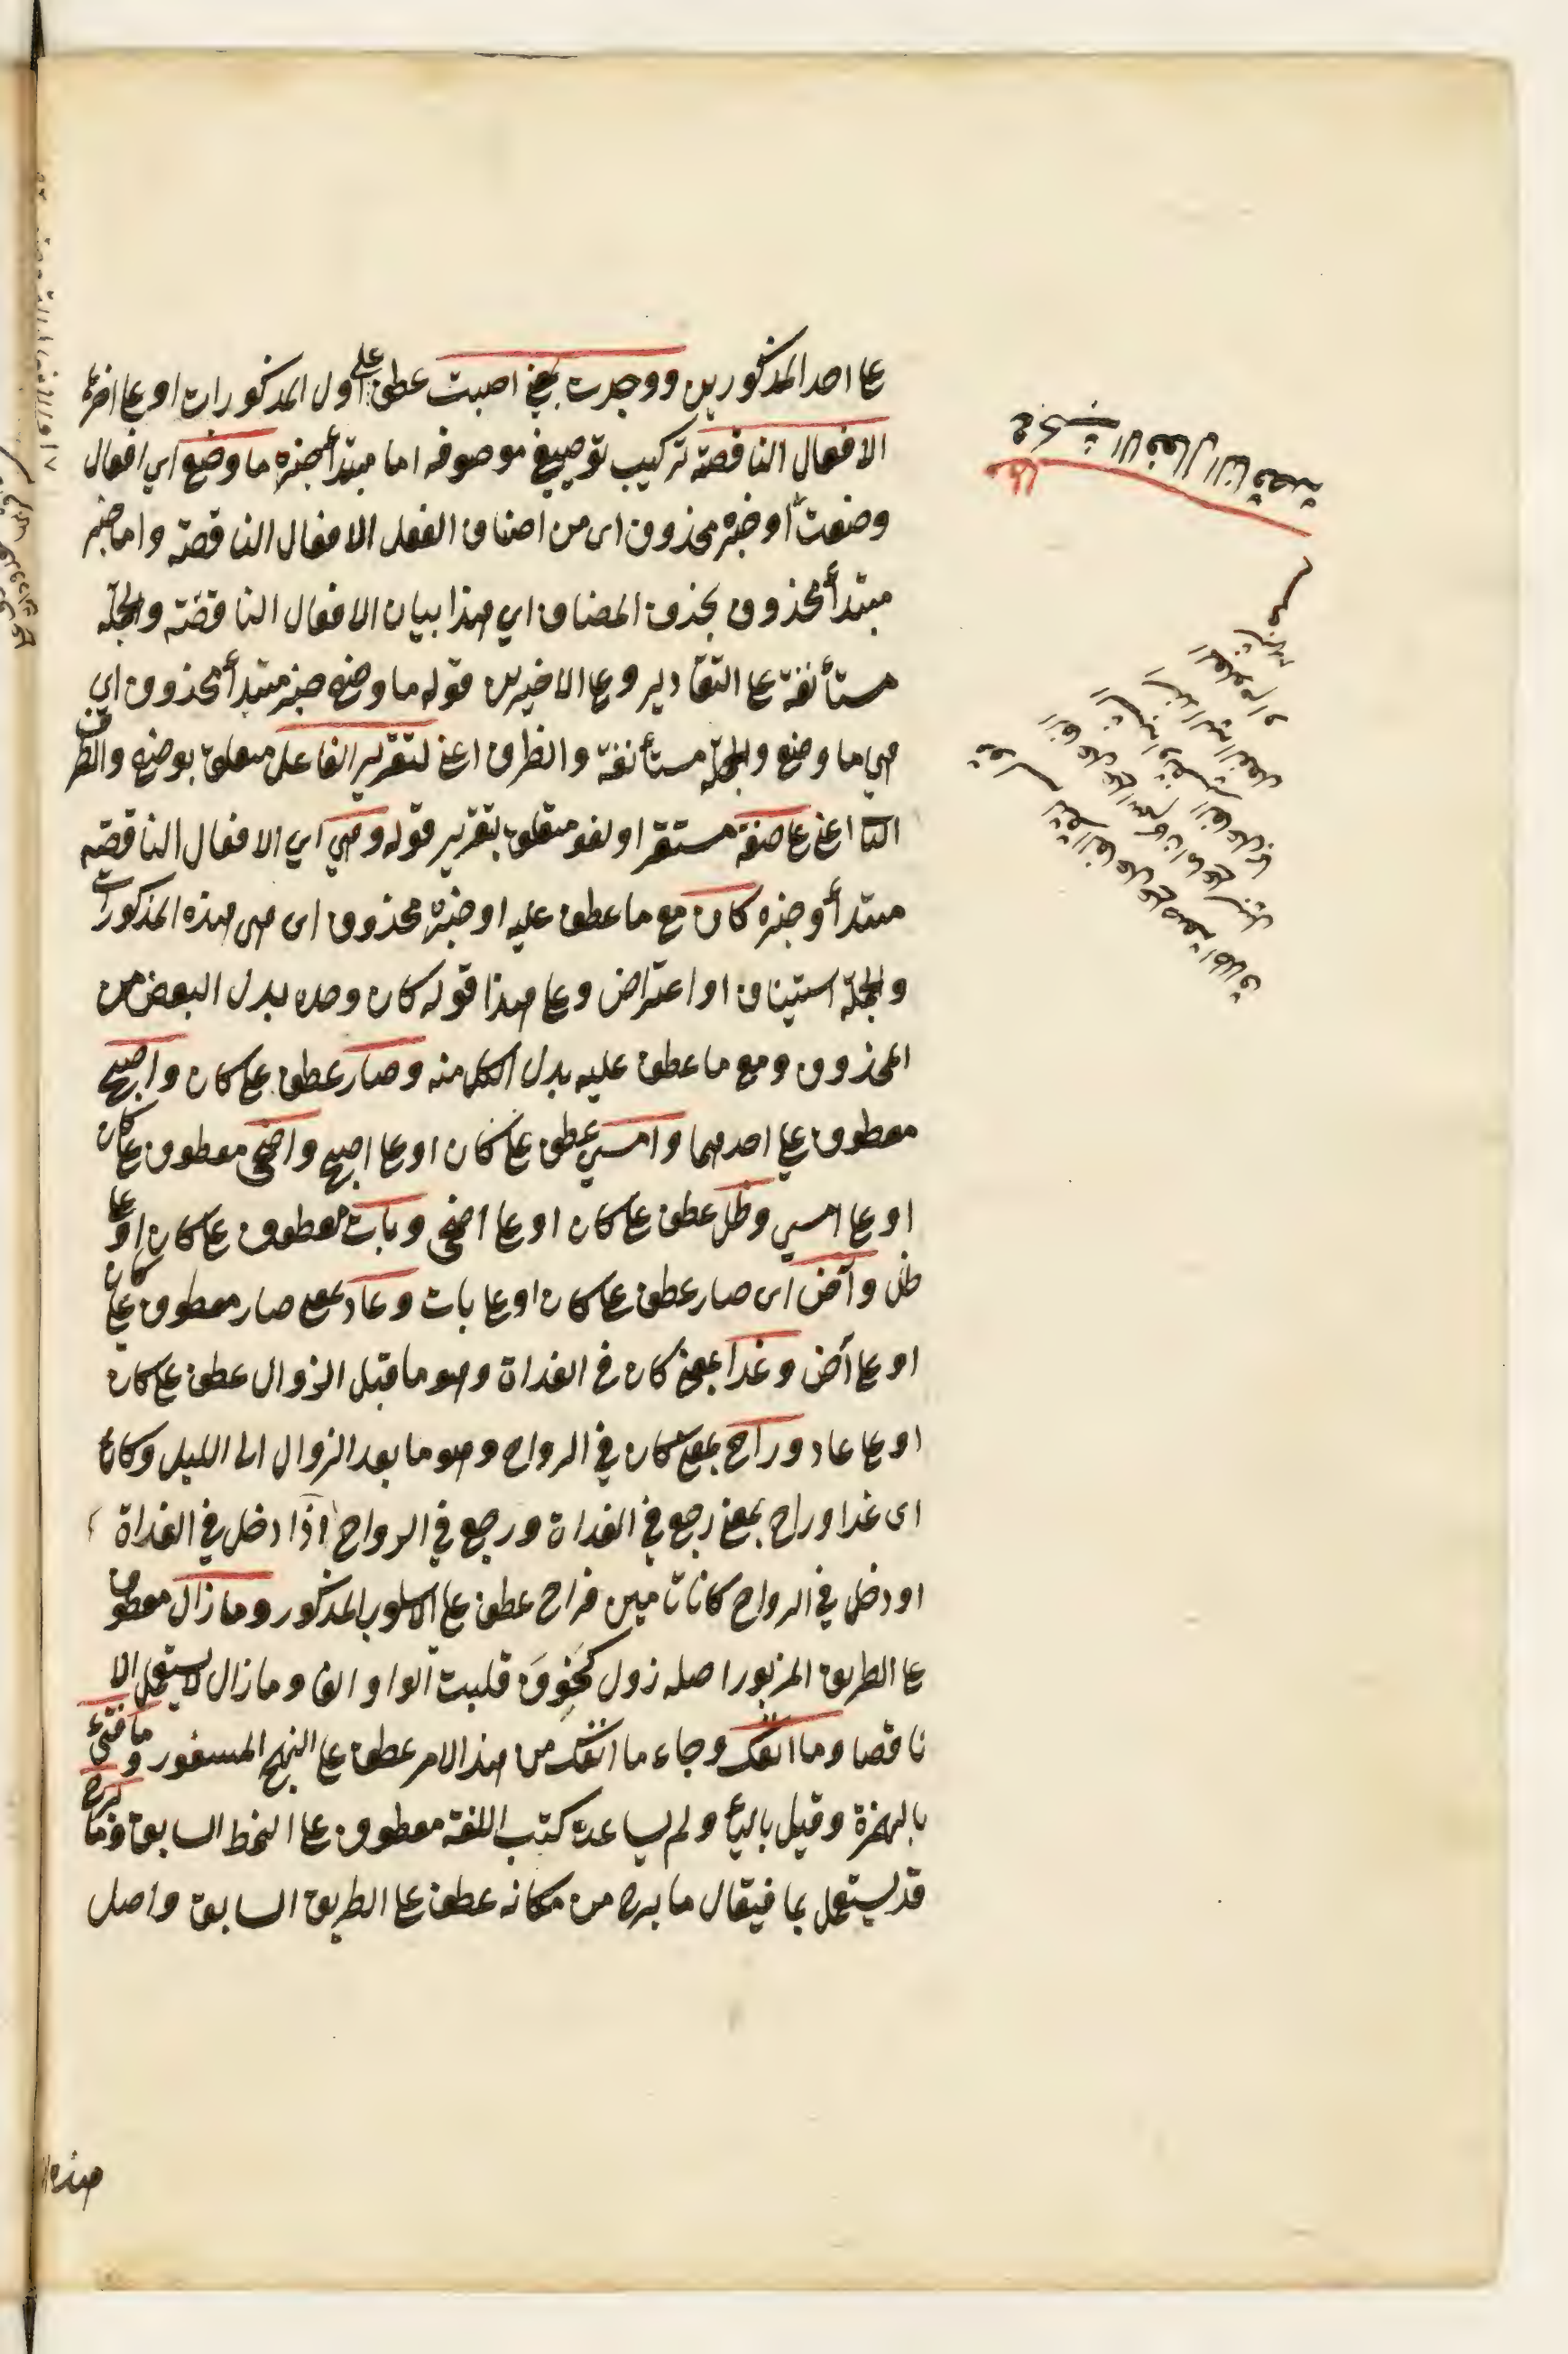 على احد المذكورين ووجدت بمعنى اصبت عطف على اول المذكورات او على اخره
الافعال الناقصة تركيب توصيفي موصوفه اما مبتدأ خبره ما وضع اي افعال
وضعت او خبره محذوف اى من اصناف الفعل الافعال الناقصة واما خبر
مبتدأ محذوف بحذف المضاف اي هذا بيان الافعال الناقصة والجملة
مستأنفة على التقادير وعلى الاخيرين قوله ما وضع خبر مبتدأ محذوف اي
هي ما وضع والجملة مستأنفة والظرف اعني لتقرير الفاعل متعلق بوضع والظرف
الثا اعني على صفة مستقر او لغو متعلق بتقرير قوله وهي اي الافعال الناقصة
مبتدأ وخبره كان مع ما عطف عليه او خبره محذوف اى هى هذه المذكورات
والجملة استيناف او اعتراض وعلى هذا قوله كان وحده بدل البعض من
المحذوف ومع ما عطف عليه بدل الكل منه وصار عطف على كان واصبح
معطوف على احدهما وامسي عطف على كان او على اصبح واضحى معطوف على كان
او على امسي وظل عطف على كان او على اضحى وبات معطوف على كان او على
ظل وآض اى صار عطف على كان او على بات وعاد بمعنى صار معطوف على كان
او على آض وغدا بمعنى كان في الغداة وهو ما قبل الزوال عطف على كان
او على عاد وراح بمعنى كان في الرواح وهو ما بعد الزوال الى الليل وكانا
اى غدا وراح بمعنى رجع في الغداة ورجع في الرواح اذا دخل في الغداة
او دخل في الرواح كانا تامين فراح عطف على الاسلوب المذكور وما زال معطوف
على الطريق المزبور اصله زول كخوف قلبت الواو الفا وما زال لا يستعمل الا
ناقصا وما انفك وجاء ما انفك من هذا الامر عطف على النهج المسفور وما فتئ
بالهمزة وقيل بالياء ولم يساعده كتب اللغة معطوف على النمط السابق وما برح
قد يستعمل بما فيقال ما برح من مكانه عطف على الطريق السابق واصل
هذه
الافعال الناقصة